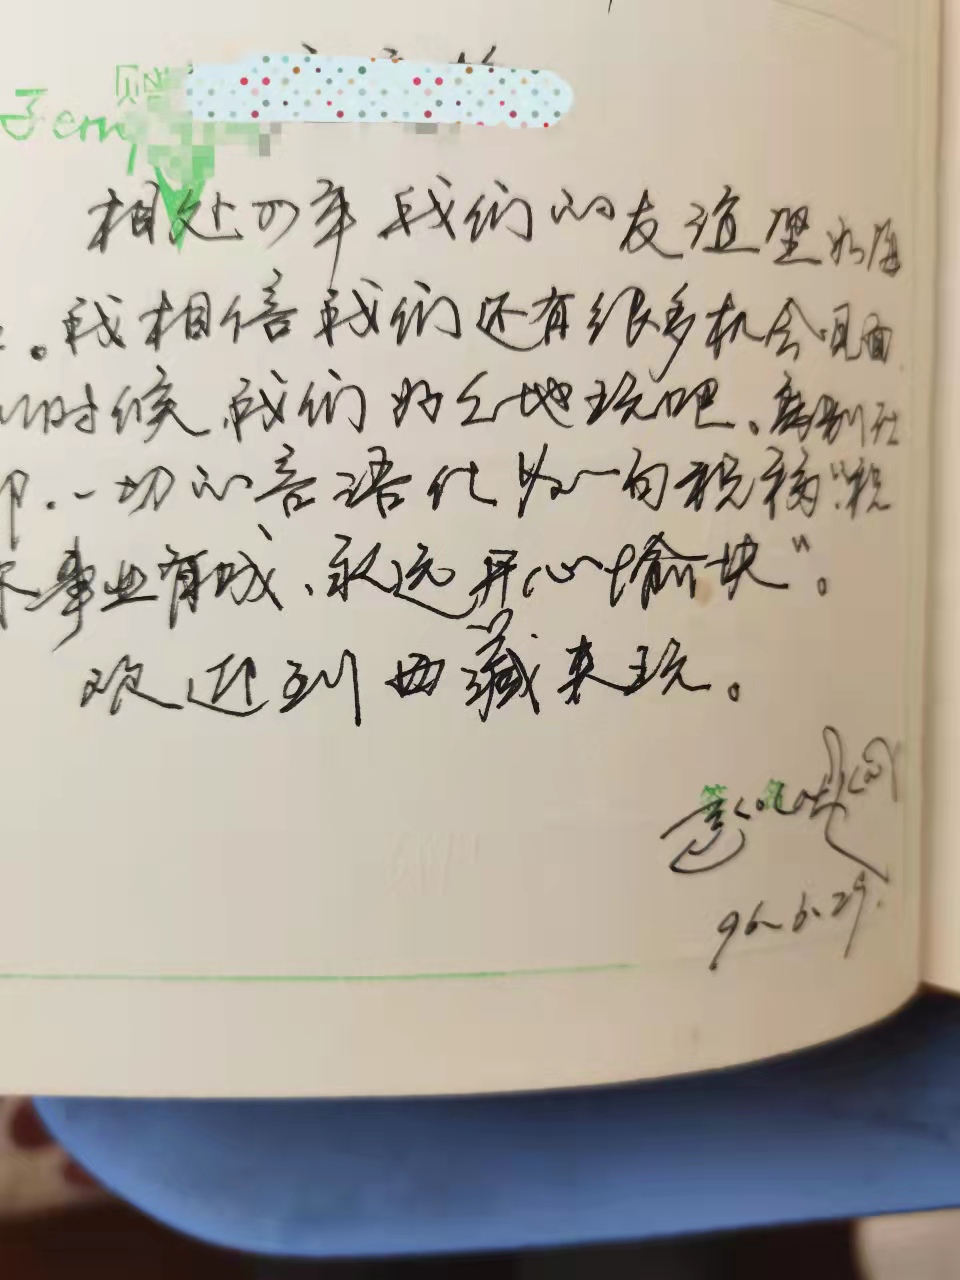 赠
相处四年我们的友谊坚如海
。我相信我们还有很多机会见面
时候,我们好之地玩吧、离别在
即.一切的言语化为一句祝福:"祝
事业有成、永远开心愉快"。
欢迎到西藏来玩。
签 名
96.6.29.